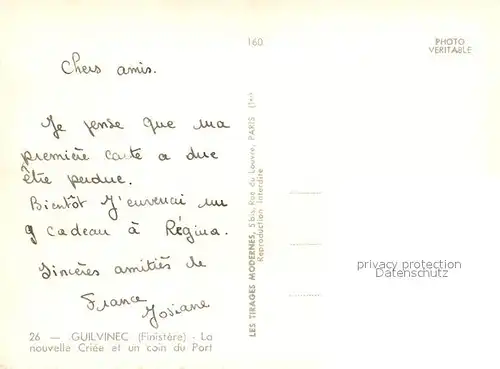 160
PHOTO
VERITABLE
Chers amis.
Je pense que ma
première carte a due
être perdue.
Bientôt J'enverrai un
cadeau à Régina.
Sincères amitiés de
France
Josiane
26 — GUILVINEC (Finistère) - La
nouvelle Criée et un coin du Port
LES TIRAGES MODERNES, 5 bis, Rue du Louvre, PARIS
Reproduction Interdite
privacy protection
Datenschutz